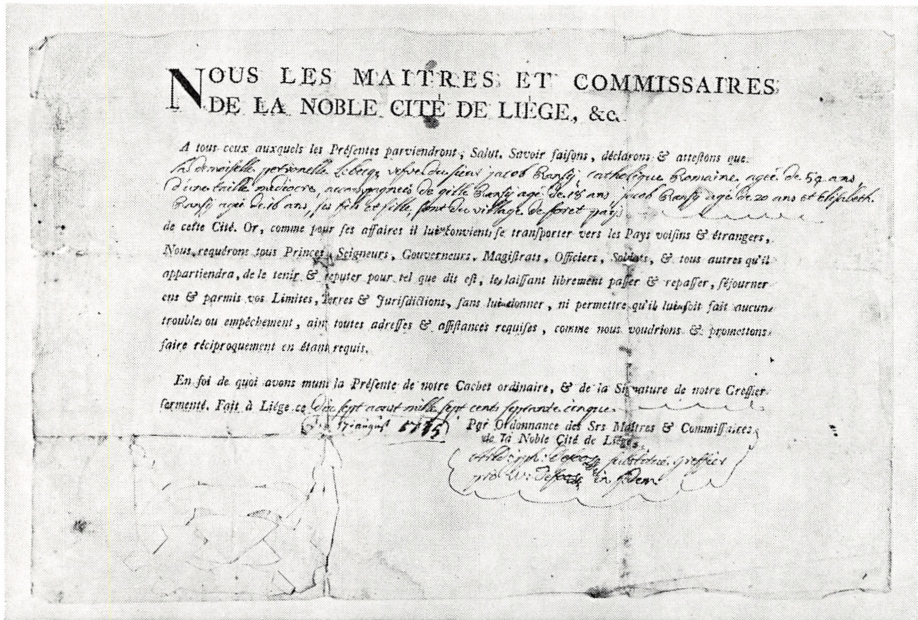 NOUS LES MAITRES ET COMMISSAIRES
DE LA NOBLE CITÉ DE LIÉGE, &c.
A tous ceux auxquels les Présentes parviendront, Salut. Savoir faisons, déclarons & attestons que
la demoiselle petronelle Lebergs vefve du sieur jacob Ransy, catholique Romaine, agée de 54 ans
d'une taille mediocre, accompagnées de gille Ransy agé de 18 ans, jacob Ransy agé de 20 ans et Elisabeth
Ransy agée de 16 ans, ses fils et fille, sont du village de foret pays
de cette Cité. Or, comme pour ses affaires il lui convient se transporter vers les Pays voisins & étrangers,
Nous requérons tous Princes, Seigneurs, Gouverneurs, Magistrats, Officiers, Soldats, & tous autres qu'il
appartiendra, de le tenir & réputer pour tel que dit est, le laissant librement passer & repasser, séjourner
ens & parmis vos Limites, Terres & Jurisdictions, sans lui donner, ni permettre qu'il lui soit fait aucun
trouble ou empêchement, ains toutes adresses & assistances requises, comme nous voudrions & promettons
faire réciproquement en étant requis.
En foi de quoi avons muni la Présente de notre Cachet ordinaire, & de la Signature de notre Greffier
sermenté. Fait à Liége ce dix sept aoust mille sept cents septante cinque
17 august 1775
Par Ordonnance des Srs Maîtres & Commissaires
de la Noble Cité de Liége,
substitué Greffier
in fidem